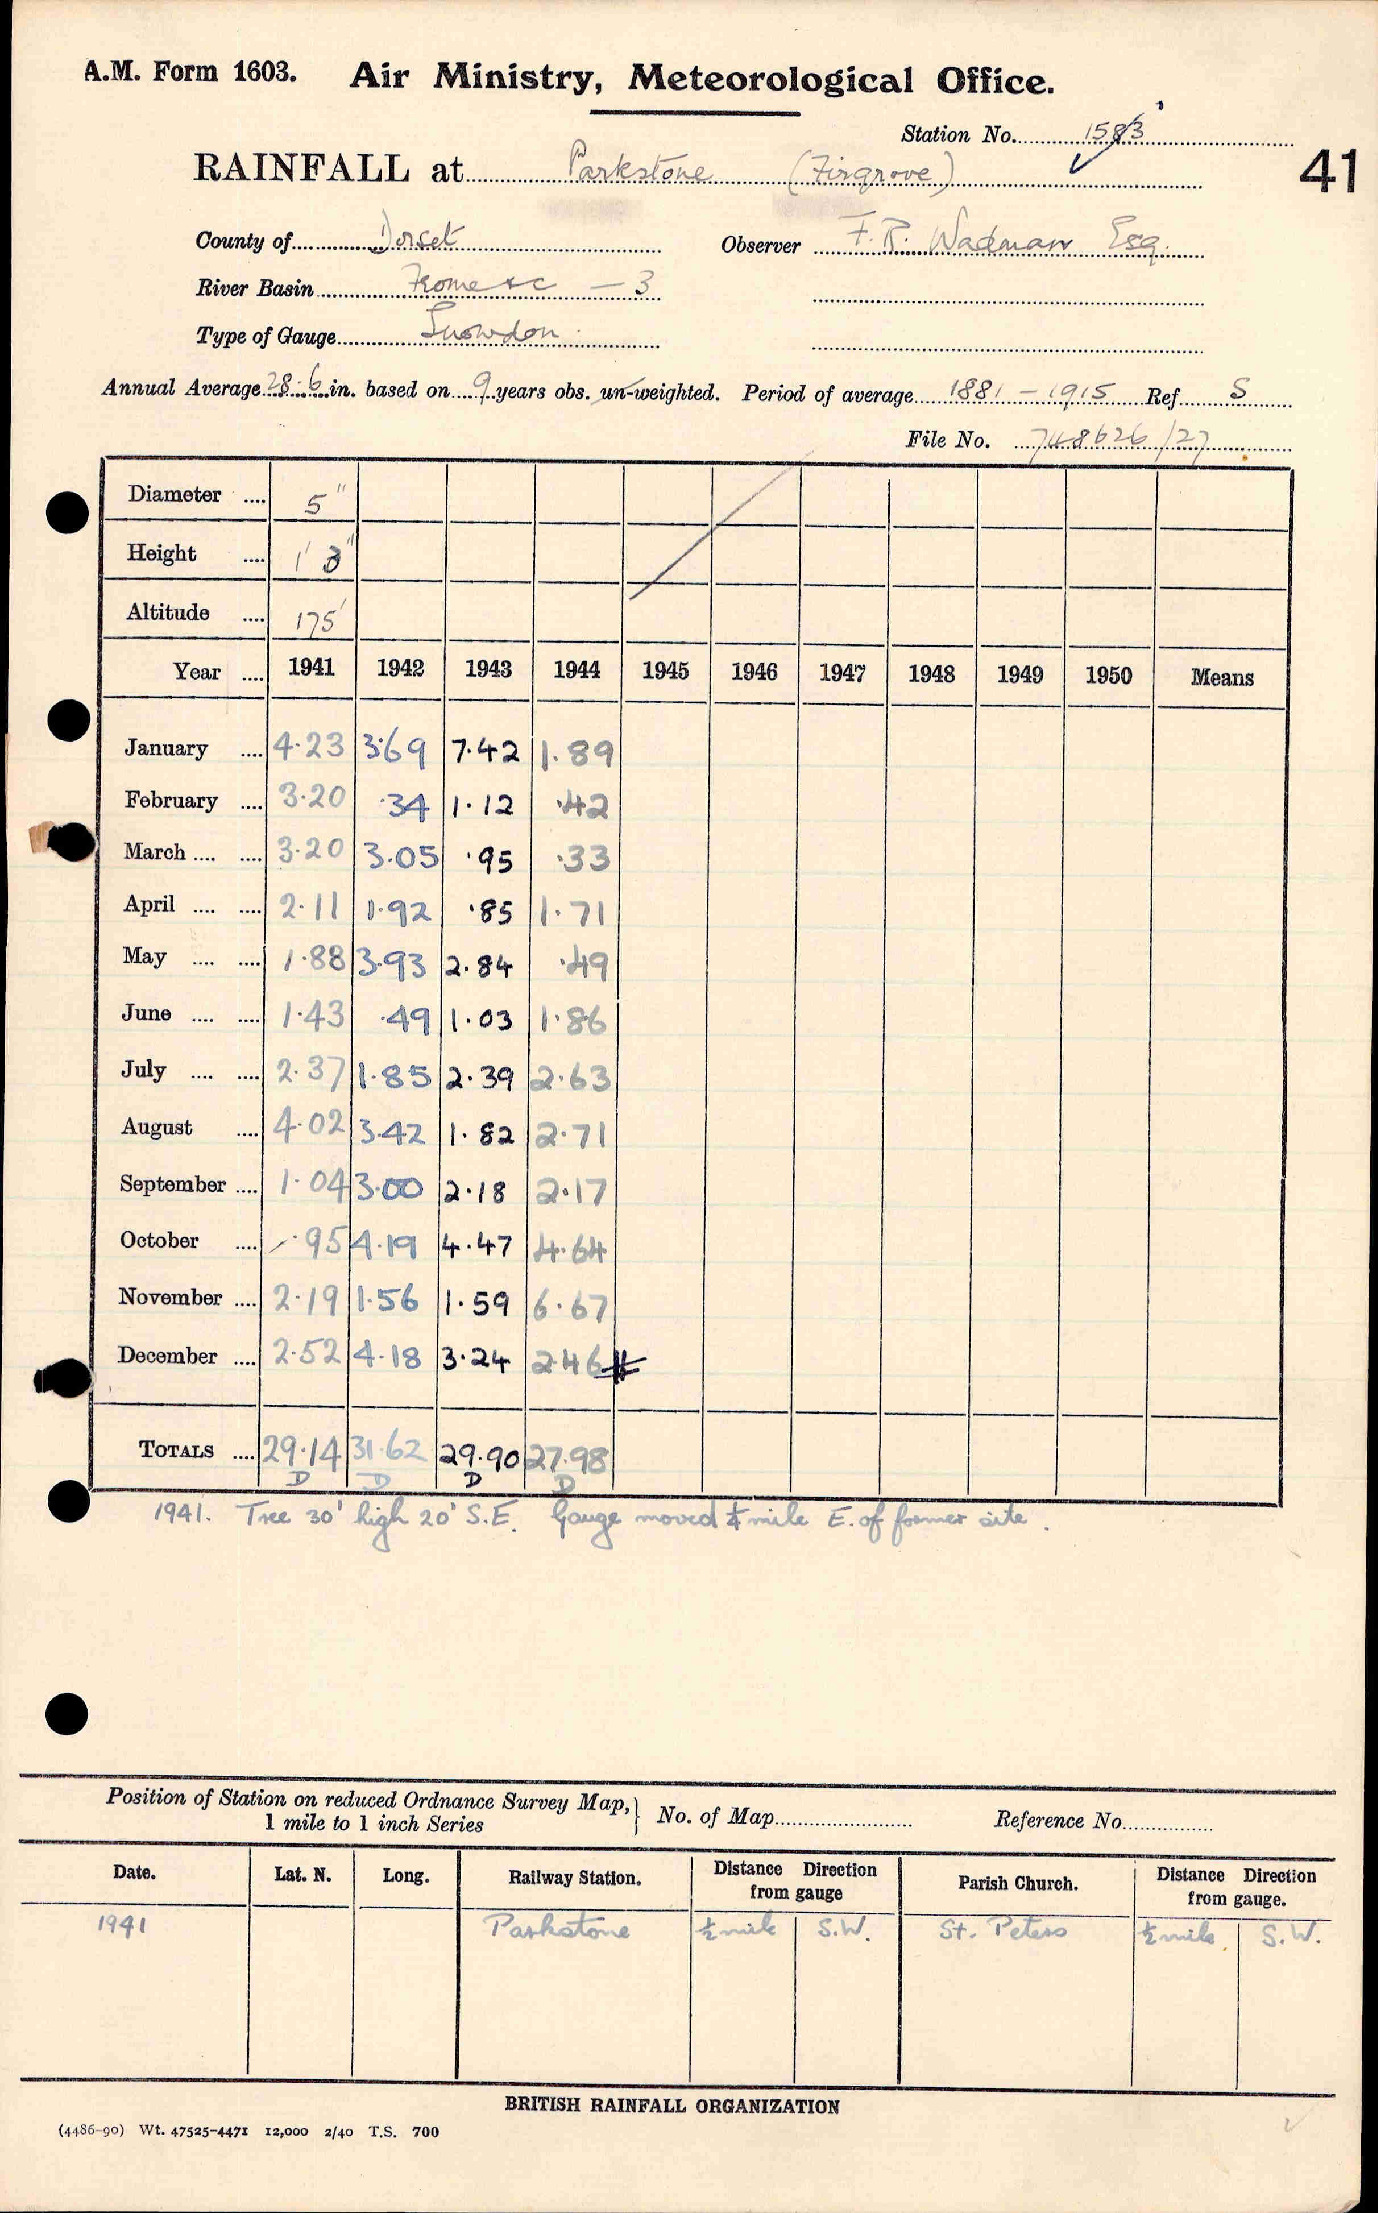 A.M. Form 1603. Air Ministry, Meteorological Office.
Station No. 1583
41
RAINFALL at Parkstone (Firgrove)
County of Dorset Observer F. R. Wadman Esq.
River Basin Frome &c — 3
Type of Gauge Snowdon
Annual Average 28.6 in. based on 9 years obs. un-weighted. Period of average 1881 - 1915 Ref S
File No. 748626/27
Diameter .... 5"
Height .... 1' 0"
Altitude .... 175'
Year .... 1941 1942 1943 1944 1945 1946 1947 1948 1949 1950 Means
January .... 4.23 3.69 7.42 1.89
February .... 3.20 .34 1.12 .42
March .... .... 3.20 3.05 .95 .33
April .... .... 2.11 1.92 .85 1.71
May .... .... 1.88 3.93 2.84 .49
June .... .... 1.43 .49 1.03 1.86
July .... .... 2.37 1.85 2.39 2.63
August .... 4.02 3.42 1.82 2.71
September .... 1.04 3.00 2.18 2.17
October .... .95 4.19 4.47 4.64
November .... 2.19 1.56 1.59 6.67
December .... 2.52 4.18 3.24 2.46
TOTALS .... 29.14 31.62 29.90 27.98
D D D D
1941. Tree 30' high 20' S.E. Gauge moved ¼ mile E. of former site.
Position of Station on reduced Ordnance Survey Map, 1 mile to 1 inch Series } No. of Map Reference No.
Date. Lat. N. Long. Railway Station. Distance Direction from gauge Parish Church. Distance Direction from gauge.
1941 Parkstone ½ mile S.W. St. Peters ½ mile S.W.
BRITISH RAINFALL ORGANIZATION
(4486-90) Wt. 47525-4471 12,000 2/40 T.S. 700